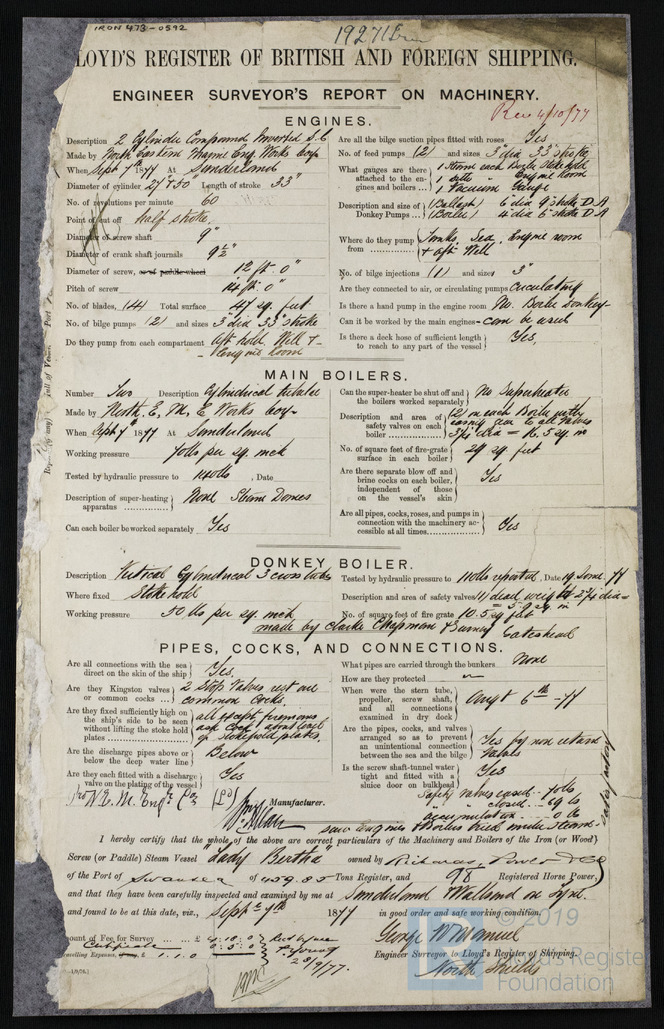 IRON 473-0592
LLOYD'S REGISTER OF BRITISH AND FOREIGN SHIPPING.
ENGINEER SURVEYOR'S REPORT ON MACHINERY.
Rec 4/10/77
ENGINES.
Description 2 Cylinder Compound Inverted S.C
Made by North Eastern Marine Eng. Works Coy
When Sept 7th 1877 At Sunderland
Diameter of cylinder 27" & 50 Length of stroke 33"
No. of revolutions per minute 60
Point of cut off half stroke
Diameter of screw shaft 9"
Diameter of crank shaft journals 9½"
Diameter of screw, or of paddle-wheel 12 ft. 0"
Pitch of screw 14 ft. 0"
No. of blades, (4) Total surface 47 sq. feet
No. of bilge pumps (2) and sizes 3" dia 33" stroke
Do they pump from each compartment Aft hold, Well &
Engine Room
Are all the bilge suction pipes fitted with roses Yes
No. of feed pumps (2) and sizes 3" dia 33" stroke
What gauges are there attached to the engines and boilers
1 Steam each Boiler Stokehold
1 Vacuum Gauge
Description and size of Donkey Pumps
(Ballast) 6 dia 9" stroke D A
(Boiler) 4 dia 6" stroke D A
Where do they pump from
Tanks, Sea, Engine room
& aft Well
No. of bilge injections (1) and sizes 3"
Are they connected to air, or circulating pumps Circulating
Is there a hand pump in the engine room No. Boiler donkey
Can it be worked by the main engines - can be used
Is there a deck hose of sufficient length to reach to any part of the vessel Yes.
MAIN BOILERS.
Number Two Description Cylindrical tubular
Made by North. E. M. E Works Coy
When Sept 7th 1877 At Sunderland
Working pressure 70 lbs per sq. inch
Tested by hydraulic pressure to 140 lbs, Date
Description of super-heating apparatus None Steam Domes
Can each boiler be worked separately Yes
Can the super-heater be shut off and the boilers worked separately No Superheater
Description and area of safety valves on each boiler
(2) on each Boiler with
easing gear to all valves
No. of square feet of fire-grate surface in each boiler 29 sq feet
Are there separate blow off and brine cocks on each boiler, independent of those on the vessel's skin Yes
Are all pipes, cocks, roses, and pumps in connection with the machinery accessible at all times Yes
DONKEY BOILER.
Description Vertical Cylindrical 3 cross tubes
Where fixed Stokehold
Working pressure 50 lbs per sq. inch
Tested by hydraulic pressure to 110 lbs reported, Date 19 June 77
Description and area of safety valves 1 dead weight 2¾ dia =
= 5.9 sq. in
No. of square feet of fire grate 10.5 sq feet
made by Clarke Chapman & Gurney Gateshead
PIPES, COCKS, AND CONNECTIONS.
Are all connections with the sea direct on the skin of the ship Yes.
Are they Kingston valves or common cocks
2 Stop Valves rest are
common Cocks.
Are they fixed sufficiently high on the ship's side to be seen without lifting the stoke hold plates
all except firemans
ash Cock about level
of Stokehold plates.
Are the discharge pipes above or below the deep water line Below
Are they each fitted with a discharge valve on the plating of the vessel Yes
What pipes are carried through the bunkers None
How are they protected
When were the stern tube, propeller, screw shaft, and all connections examined in dry dock Augt 6th -77
Are the pipes, cocks, and valves arranged so as to prevent an unintentional connection between the sea and the bilge
Yes by non return
Valves
Is the screw shaft-tunnel water tight and fitted with a sluice door on bulkhead Yes
pro N. E. M. Engg Coy (Ld) Manufacturer.
Wm Allan
Safety Valves eased - 70 lbs
closed - 69 lb
accumulation - 0 lb
saw Engines & Boilers tried under steam
I hereby certify that the whole of the above are correct particulars of the Machinery and Boilers of the Iron (or Wood)
Screw (or Paddle) Steam Vessel "Lady Bertha" owned by Richards, Power & Co
of the Port of Swansea of 459.85 Tons Register, and 98 Registered Horse Power,
and that they have been carefully inspected and examined by me at Sunderland & Wallsend on Tyne
and found to be at this date, viz., Sept 7th 1877 in good order and safe working condition.
George W Manuel
Engineer Surveyor to Lloyd's Register of Shipping.
North Shields
Amount of Fee for Survey £ 4.10.0
Certificate 0.5.0
Travelling Expenses, if any, £ 1.1.0
28/9/77.
© 2019
Lloyd's Register
Foundation